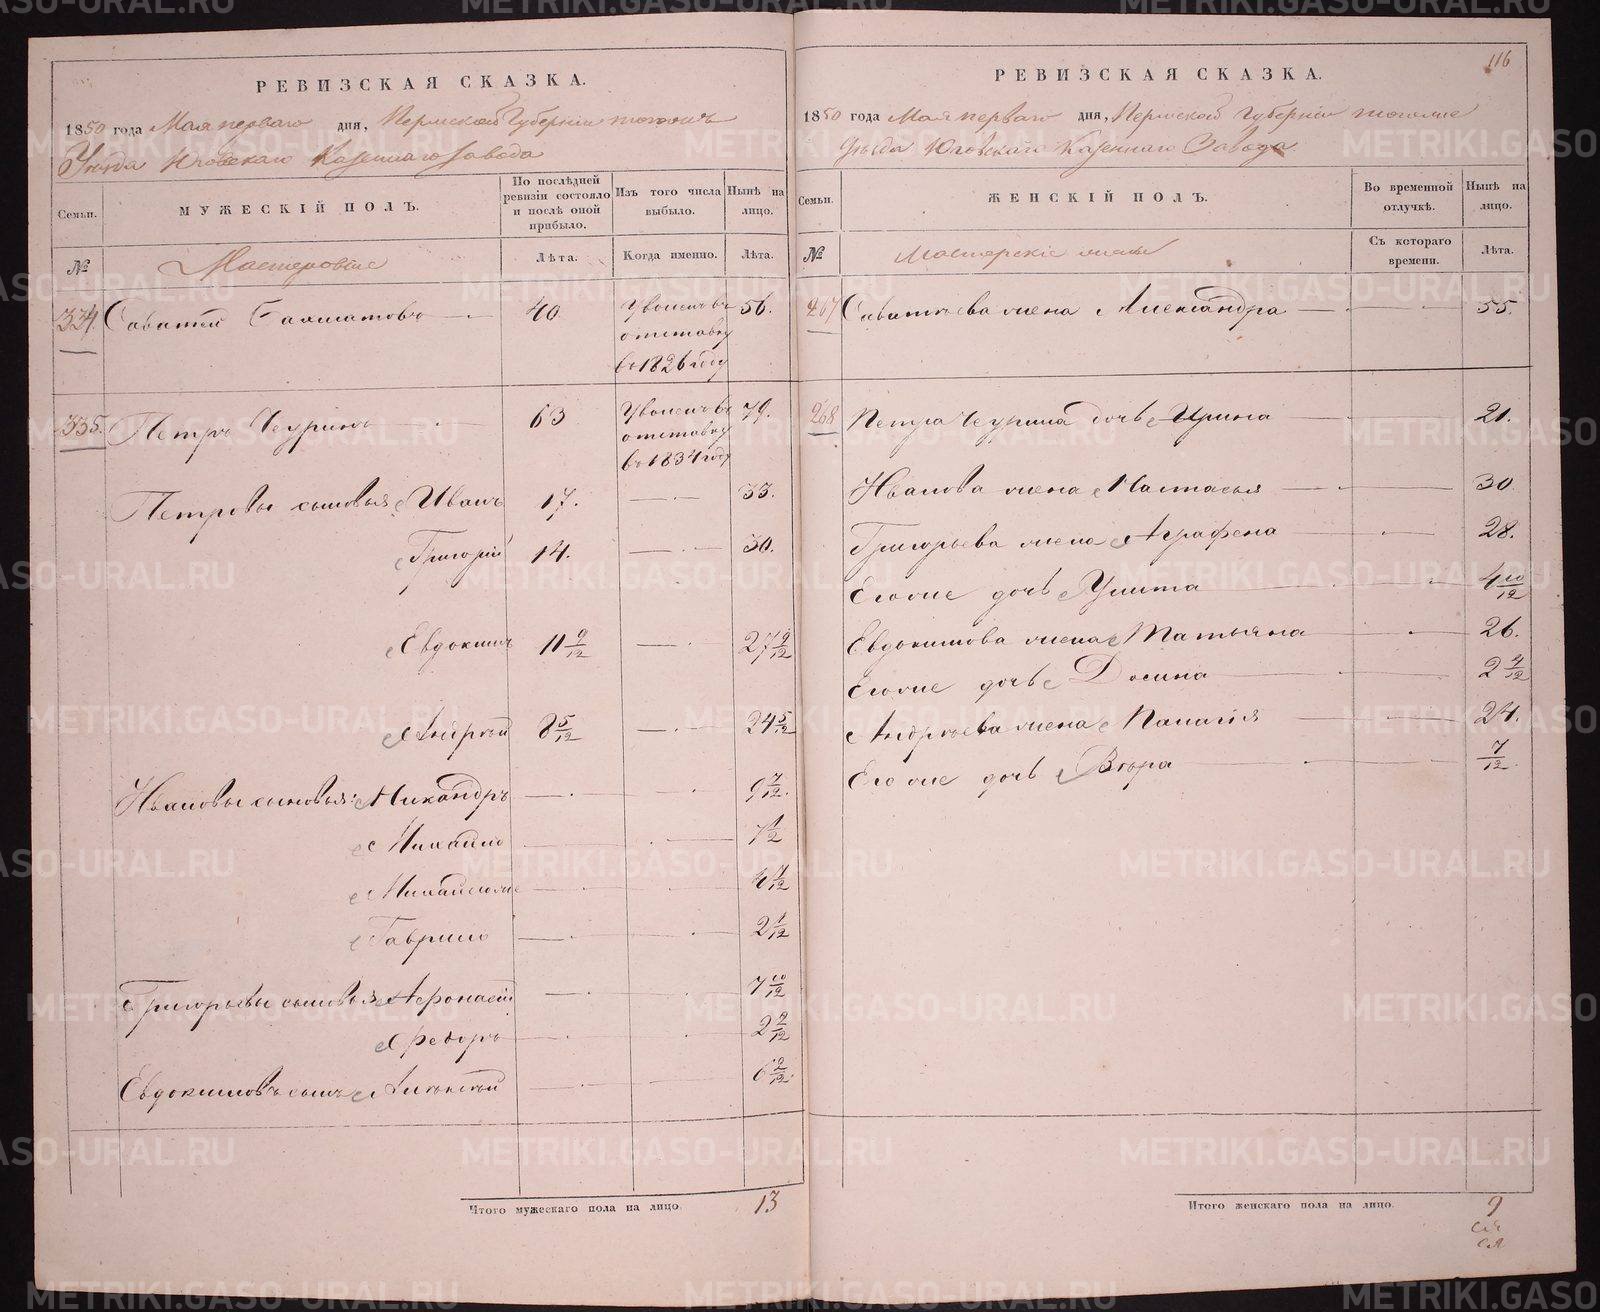 116
РЕВИЗСКАЯ СКАЗКА.
1850 года Мая перваго дня, Пермской Губернiи тогоже
Уѣзда Юговскаго Казеннаго Завода
Семьи. МУЖЕСКIЙ ПОЛЪ. По послѣдней ревизiи состояло и послѣ оной прибыло. Изъ того числа выбыло. Нынѣ на лицо.
№ Мастеровые Лѣта. Когда именно. Лѣта.
334. Саватей Бахматовъ 40 Уволенъ въ 56.
отставку
въ 1826 году
335. Петръ Чуринъ 63 Уволенъ въ 79.
отставку
въ 1834 году
Петровы сыновья Иванъ 17. 33.
Григорiй 14. 30.
Евдокимъ 11 9/12 27 9/12
Андрей 8 5/12 24 5/12
Ивановы сыновья: Никандръ 9 7/12.
Михайло 7 1/2
4 7/12
Гаврило 2 1/12
Григорьевы сыновья Афонасiй 7 10/12
Федоръ 2 2/12
Евдокимовъ сынъ Алексѣй 6 2/12.
Итого мужескаго пола на лицо. 13
РЕВИЗСКАЯ СКАЗКА.
1850 года Мая перваго дня, Пермской Губернiи тогоже
Уѣзда Юговскаго Казеннаго Завода
Семьи. ЖЕНСКIЙ ПОЛЪ. Во временной отлучкѣ. Нынѣ на лицо.
№ Мастерскiе жены Съ котораго времени. Лѣта.
267 Саватѣева жена Александра 55.
268 Петра Чурина дочь Ирина 21.
Иванова жена Настасья 30
Григорьева жена Аграфена 28.
Егоже дочь Улита 4 10/12
Евдокимова жена Татьяна 26.
Егоже дочь Домна 2 4/12
Андрѣева жена Палагiя 24.
Егоже дочь Вѣра 7/12.
Итого женскаго пола на лицо. 9